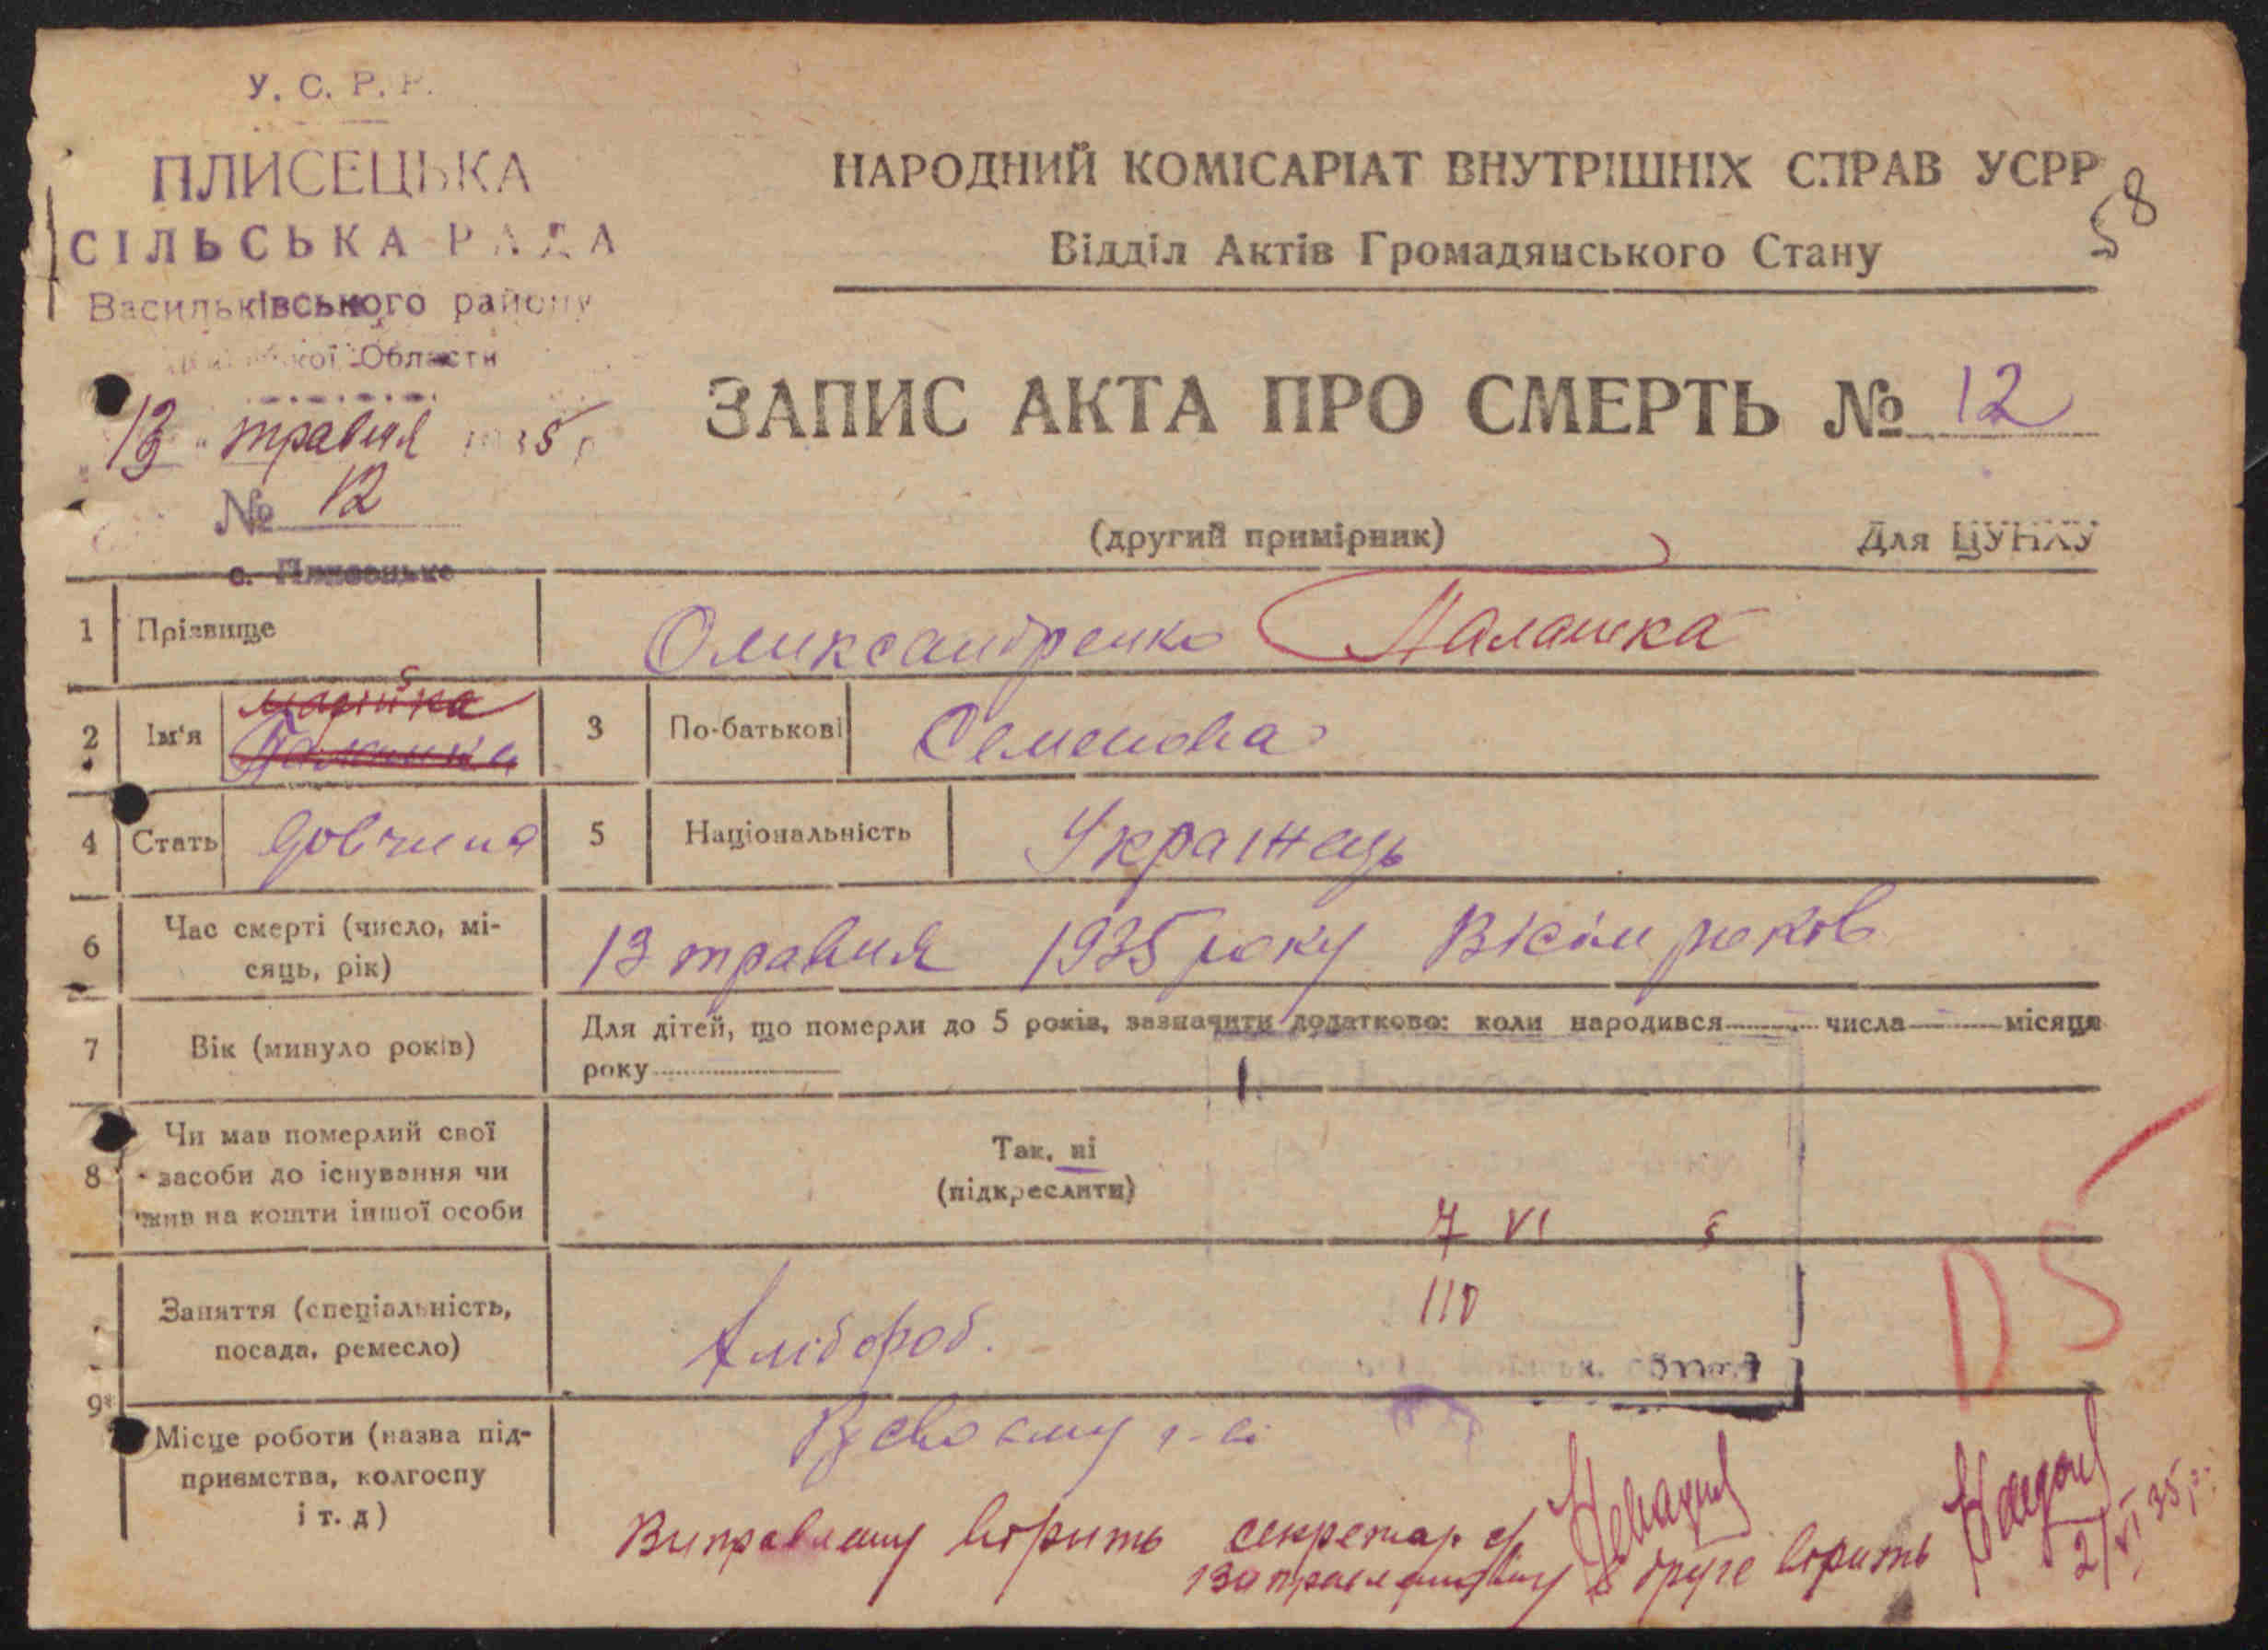 У. С. Р. Р.
ПЛИСЕЦЬКА
СІЛЬСЬКА РАДА
Васильківського району
Области
13 " травня 1935 р
№ 12
с. Плисецьке
НАРОДНИЙ КОМІСАРІАТ ВНУТРІШНІХ СПРАВ УСРР
58
Відділ Актів Громадянського Стану
ЗАПИС АКТА ПРО СМЕРТЬ № 12
(другий примірник) Для ЦУНХУ
1 Прізвище Олександренко Палашка
2 Ім'я 3 По-батькові Семенова
4 Стать довчина 5 Національність Українець
6 Час смерті (число, мі-
сяць, рік) 13 травня 1935 року Вісім років
7 Вік (минуло років) Для дітей, що померли до 5 років, зазначити додатково: коли народився числа місяця
року
8 Чи мав померлий свої
засоби до існування чи
жив на кошти іншої особи
Так, ні
(підкреслити)
7 VI 5
110
D5
9* Заняття (спеціальність,
посада, ремесло) Хлібороб.
Місце роботи (назва під-
приємства, колгоспу
і т. д) В своєму г-ві
Виправленну вірить секретар с/
друге вірить
2/VI 35 р.